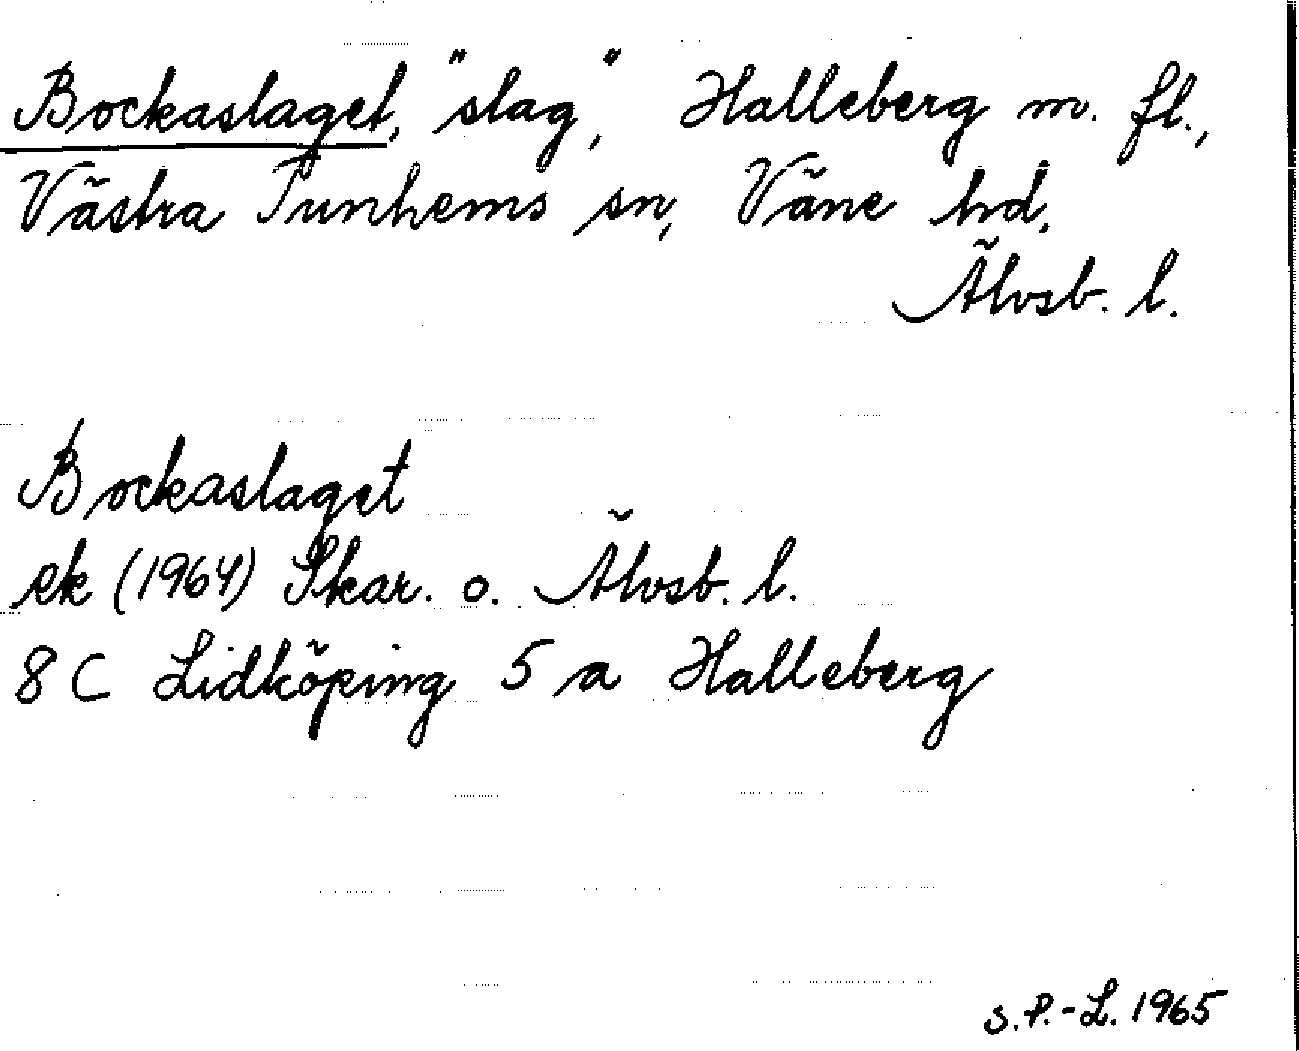 Bockaslaget, "slag", Halleberg m. fl.,
Västra Tunhems sn, Väne hd,
Älvsb. l.
Bockaslaget
ek (1964) Skar. o. Älvsb. l.
8 C Lidköping 5 a Halleberg
S.P.-L. 1965